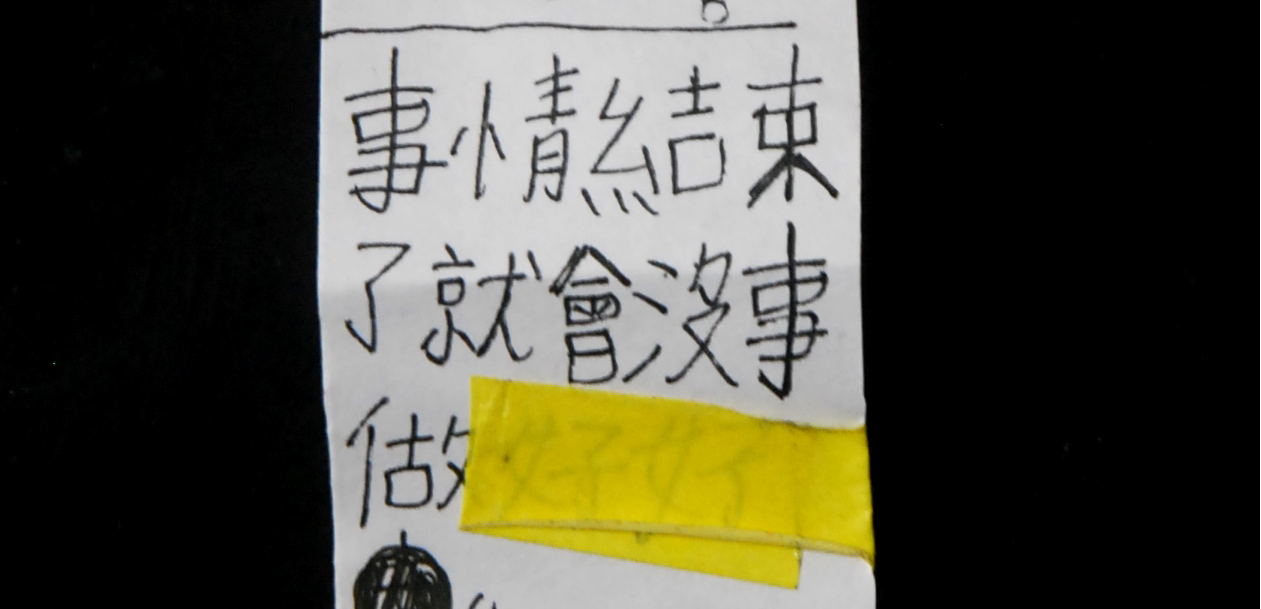 事情結束
了就會沒事
做好好